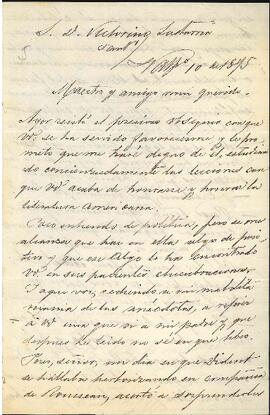 S. D. Victorino Lastarria
Santo
Valpo 10 de 1875
Maestro y amigo mui querido:
Ayer recibí el precioso obsequio con que
Ud. se ha servido favorecerme y le pro-
meto que me haré digno de él, estudian-
do concienzudamente las lecciones con
que Ud. acaba de honrarse y honrar la
literatura Americana.
Poco entiendo de política, pero se me
alcanza que hai en ella algo de posi-
tivo y que ese Algo lo ha encontrado
Ud. en sus pacientes elucubraciones.
I aquí voi, cediendo a mi maldita
manía de las anécdotas, a referir
a Ud. una que oí a mi padre y que
después he leido no se en que libro.
Pues, señor, un dia en que Diderot
se hallaba herborizando en compañía
de Rousseau, acertó a sorprenderlos